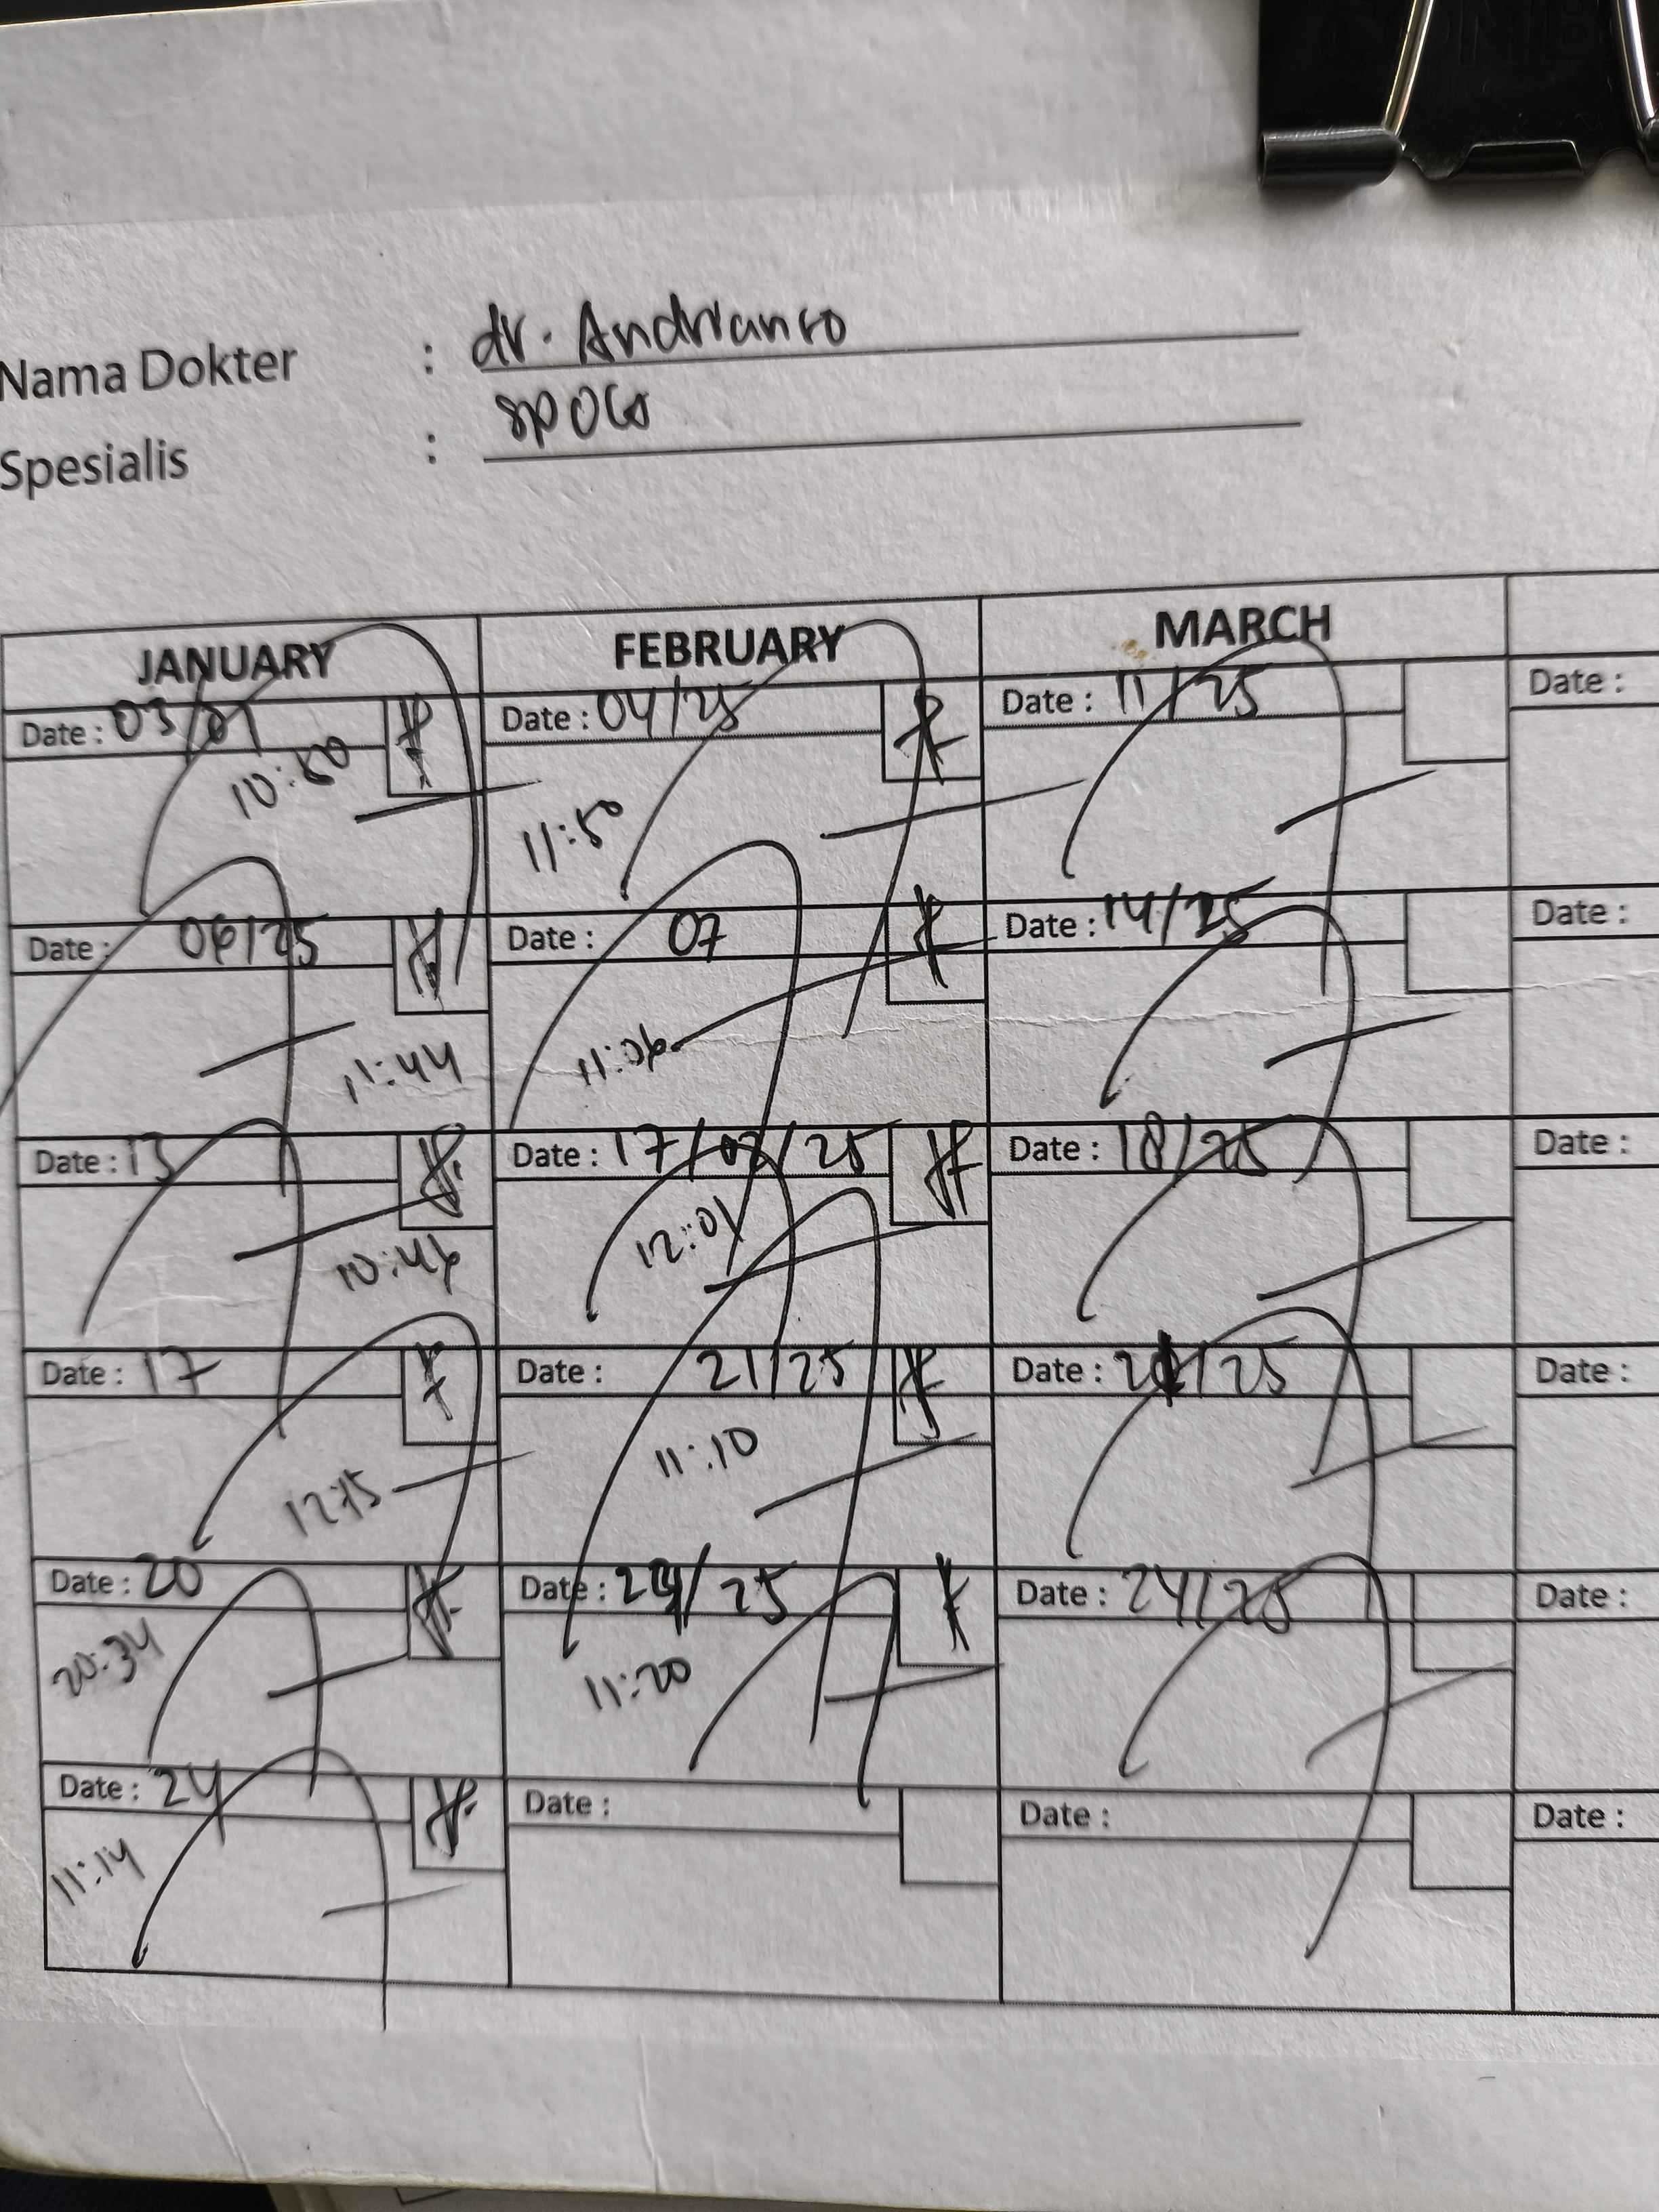 Nama Dokter : dr. Andrianro
Spesialis : SPOG
JANUARY FEBRUARY MARCH
Date : 03/01 Date : 04/25 Date : 11/25 Date :
10:50 11:50
Date : 06/25 Date : 07 Date : 14/25 Date :
11:44 11:06
Date : 13 Date : 17/02/25 Date : 18/25 Date :
10:46 12:01
Date : 17 Date : 21/25 Date : /25 Date :
11:10
Date : 20 Date : 24/25 Date : 24/25 Date :
20:34 11:20
Date : 24 Date : Date : Date :
11:14